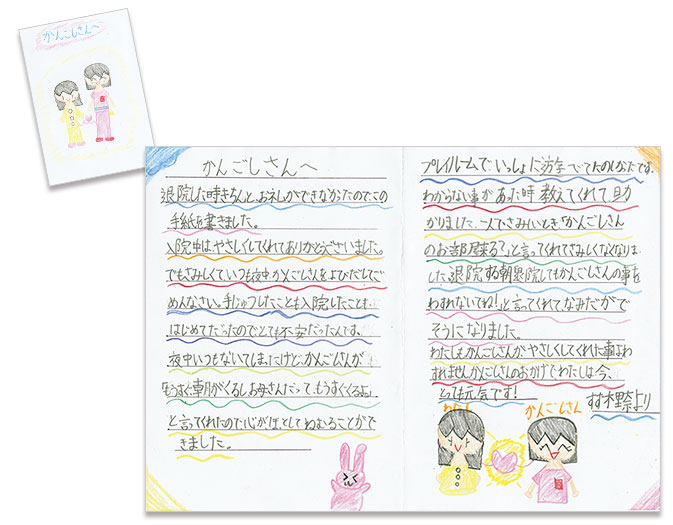 かんごしさんへ
かんごしさんへ
退院した時きちんと、おれいができなかったのでこの
手紙を書きました。
入院中はやさしくしてくれてありがとうございました。
でもさみしくていつも夜中かんごしさんをよびだしてご
めんなさい。手じゅつしたことも入院したことも
はじめてだったのでとても不安だったんです。
夜中いつもないてしまったけど、かんごしさんが
「もうすぐ朝がくるしお母さんだって、もうすぐくるよ。」
と言ってくれたので心がほっとしてねむることがで
きました。
プレイルームでいっしょに
わからない事があった時教えてくれて助
かりました。一人でさみしいとき「かんごしさん
のお部屋来る?」と言ってくれてさみしくなくなりま
した。退院する朝「退院してもかんごしさんの事を
わすれないでね!」と言ってくれてなみだがで
そうになりました。
わたしもかんごしさんがやさしくしてくれた事はわ
すれませんかんごしさんのおかげでわたしは今、
とっても元気です!
より
わたし
かんごしさん